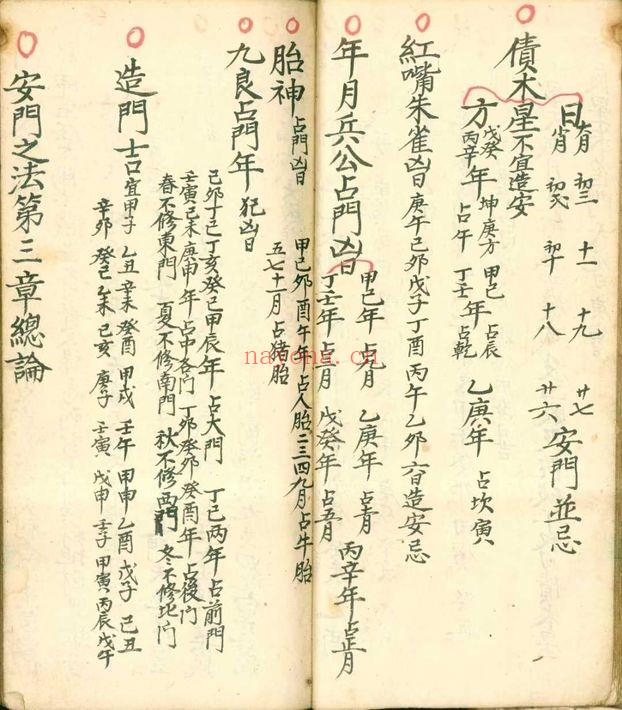 債木星不宜造安
日 大月 初三 十一 十九 廿七
小月 初二 初十 十八 廿六 安門並忌
方 戊癸年占坤庚方 甲己年占辰 乙庚年占坎寅
丙辛占午 丁壬占乾
紅嘴朱雀凶日 庚午己卯戊子丁酉丙午乙卯六日造安忌
年月兵公占門凶日 甲己年占九月 乙庚年占 月 丙辛年占正月
丁壬年占三月 戊癸年占五月
胎神占門凶日 甲己卯酉午年占人胎二三四九月占牛胎
五七十一月占猪胎
九良占門年犯凶日
己卯丁己丁亥癸己甲辰年占大門 丁己两年占前門
壬寅己未庚申年占中各门丁卯癸卯癸酉年占後门
春不修東門 夏不修南門 秋不修西門 冬不修北门
造門吉宜甲子 乙丑 辛未 癸酉 甲戌 壬午 甲申 乙酉 戊子 己丑
辛卯 癸己 乙未 己亥 庚子 壬寅 戊申 壬子 甲寅 丙辰 戊午
安門之法第三章總論
nayona.cn